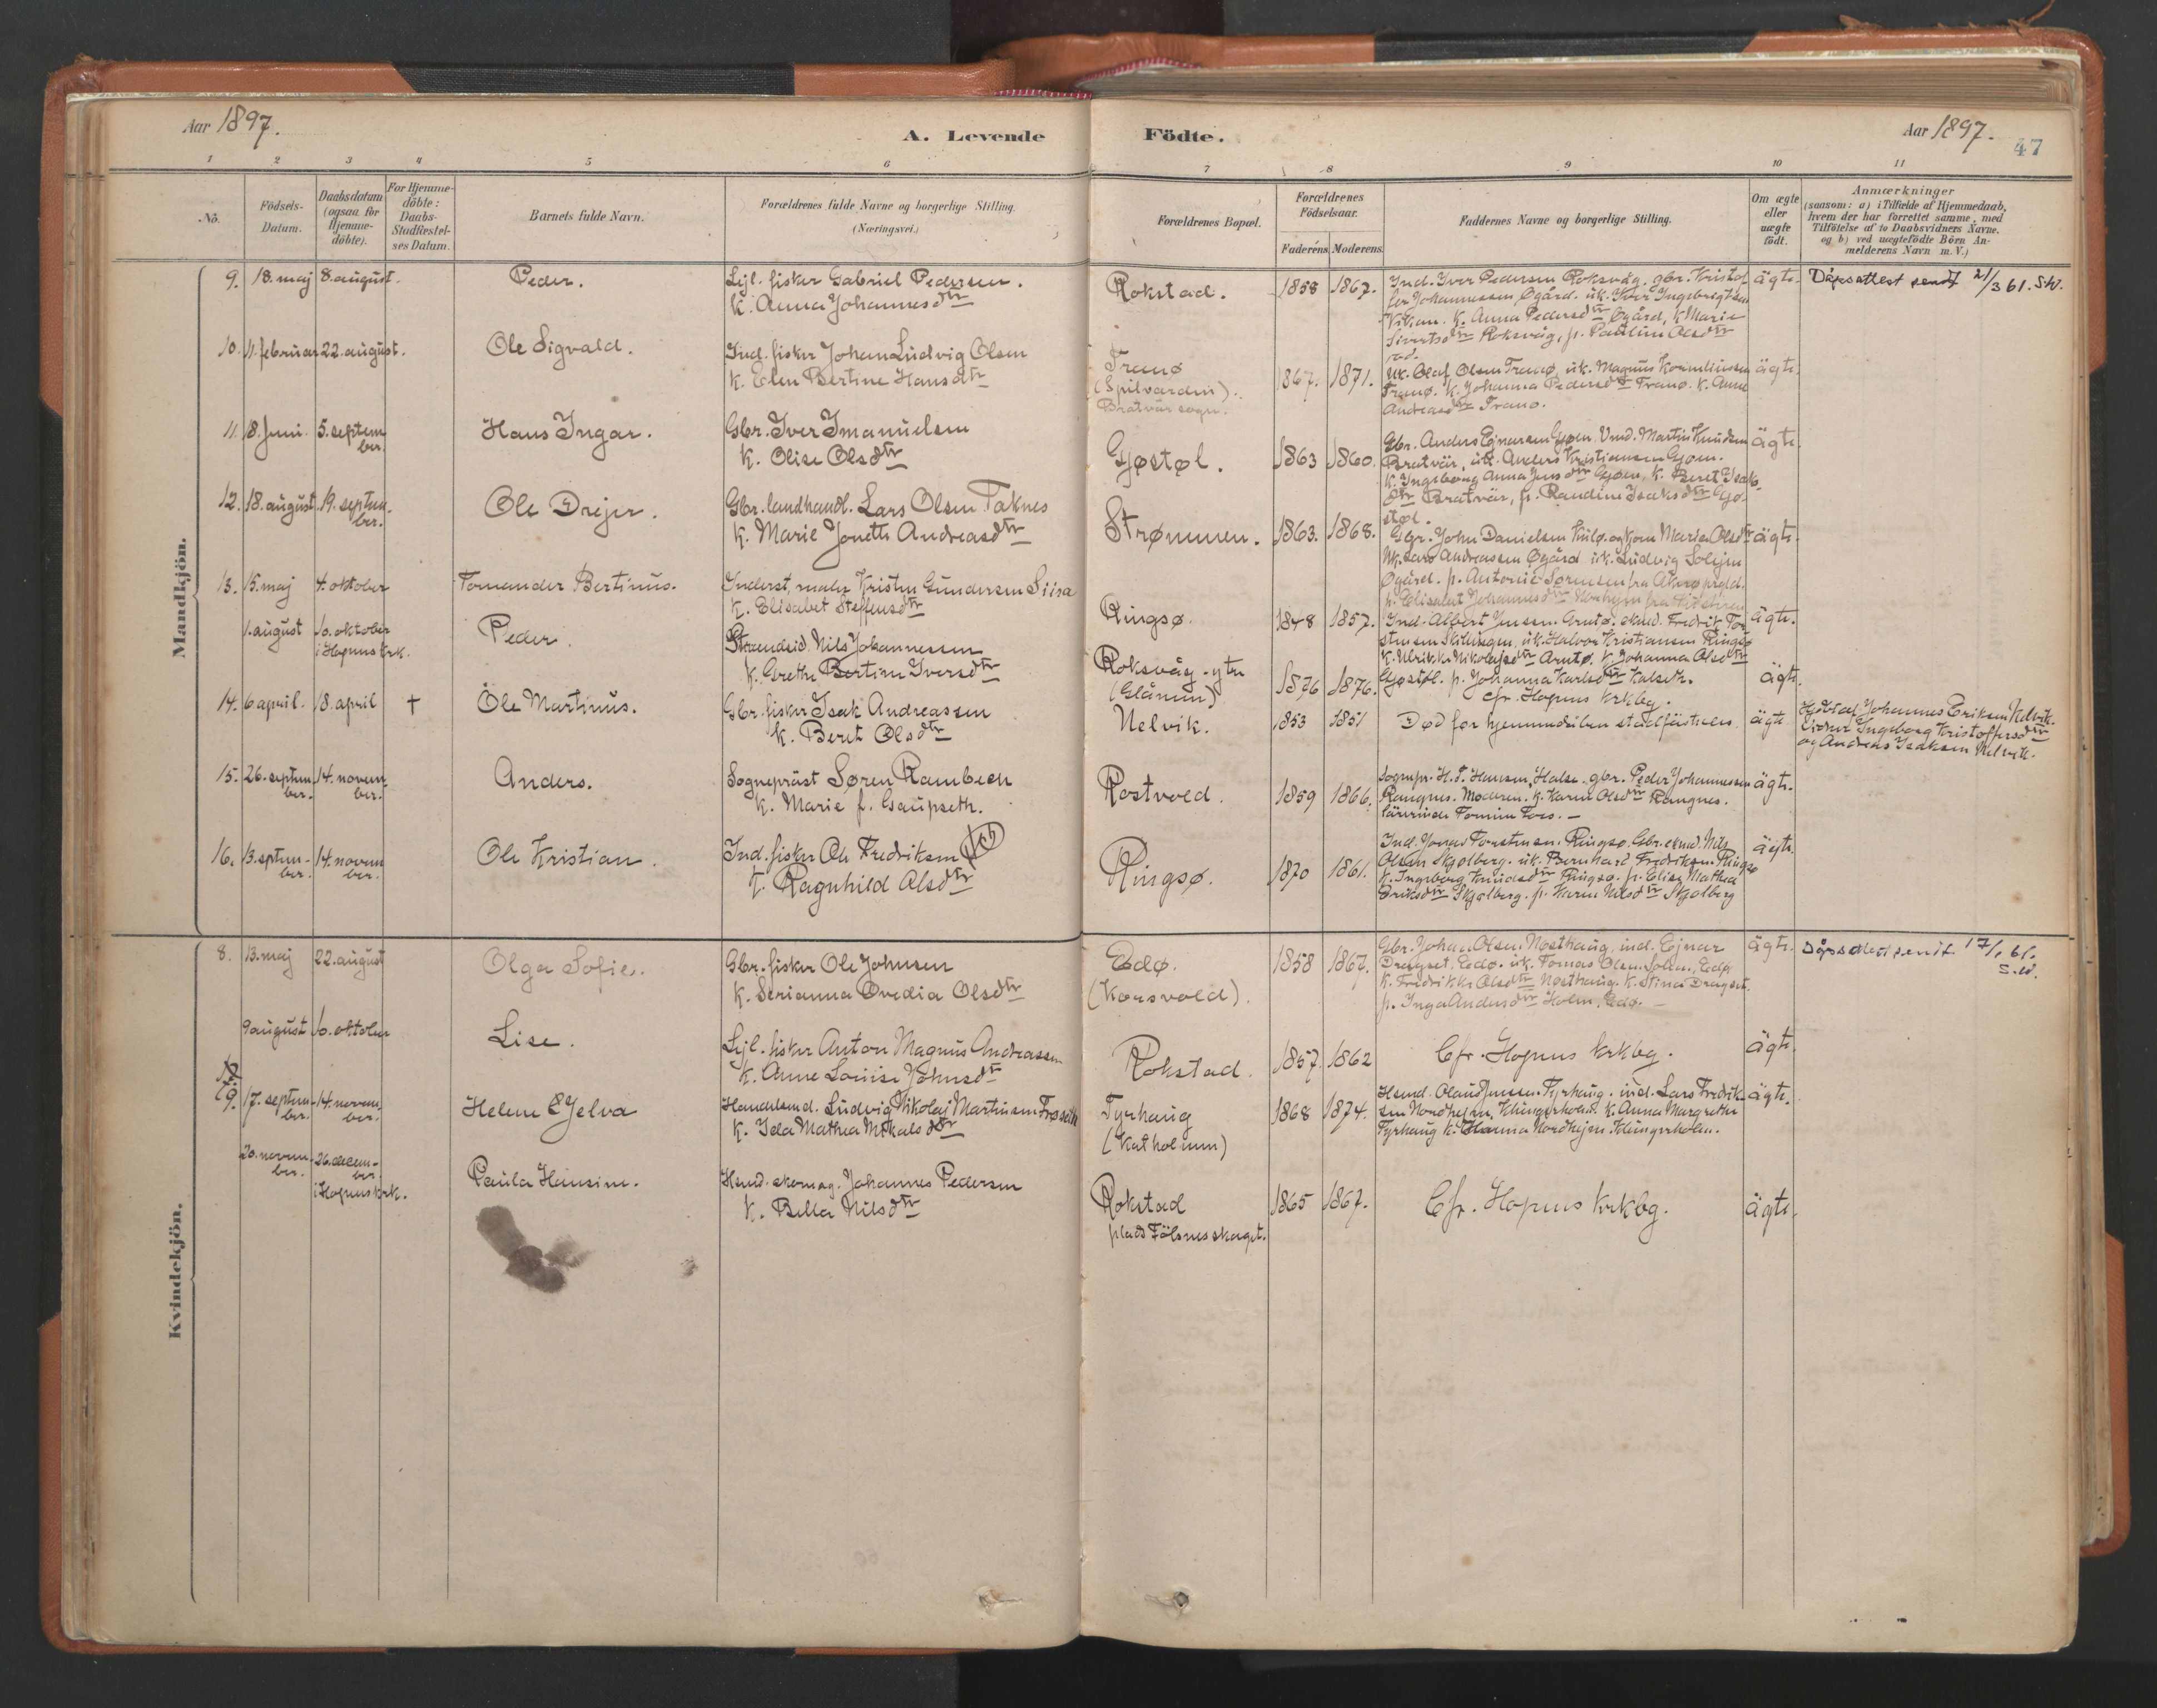 Aar 1897.
A. Levende Födte.
Aar 1897.
47
1 2 3 4 5 6 7 8 9 10 11
No.
Födsels-
Datum.
Daabsdatum
(ogsaa for
Hjemme-
döbte).
For Hjemme-
döbte:
Daabs-
Stadfæstel-
ses Datum.
Barnets fulde Navn.
Forældrenes fulde Navne og borgerlige Stilling.
(Næringsvei.)
Forældrenes Bopæl.
Forældrenes
Födselsaar.
Faderens. Moderens.
Faddernes Navne og borgerlige Stilling.
Om ægte
eller
uægte
födt.
Anmærkninger
(saasom: a) i Tilfælde af Hjemmedaab,
hvem der har forrettet samme, med
Tilföielse af to Daabsvidners Navne.
og b) ved uægtefödte Börn An-
melderens Navn m. V.)
Mandkjön.
9. 18. maj 8. august. Peder.
Lejl. fisker Gabriel Pedersen.
K. Anna Johannesdtr
Rokstad. 1858 1867.
Ind. Iver Pedersen Roksvåg. gbr. Kristof
fer Johannessen Ögård. uk. Iver Ingebrigtsen
Vikan. K. Anna Pedersdtr Ögård, K. Marie
Sivertsdtr Roksvåg, p. Pauline Olsdtr
ägte. Dåpsattest sendt 21/3 61. S.W.
10. 11. februar 22. august. Ole Sigvald.
Ind. fisker Johan Ludvig Olsen
K. Elen Bertine Hansdtr
Tranø
(Spilvarden).
Bratvär sogn.
1867. 1871.
uk. Olaf Olsen Tranø, uk. Magnus Kornelius
Tranø. K. Johanna Pedersdtr Tranø. K. Anne
Andreasdtr Tranø.
ägte.
11. 18. juni. 5. septem
ber. Hans Ingar.
Gbr. Iver Imanuelsen
K. Olise Olsdtr
Gjøstøl. 1863 1860.
Gbr. Anders Ejnarsen Gjøen. Umd. Martin Knudsen
Bratvär, uk. Anders Kristiansen Gjøen.
K. Ingeborg Anna Jensdtr Gjøen, K. Beret Isak-
dtr Bratvär, p. Randine Isaksdtr Gjø-
støl.
ägte
12. 18. august. 19. septem.
ber. Ole Drejer.
Gbr. landhandl. Lars Olsen Taknes
K. Marie Jonette Andreasdtr
Strømmen. 1863. 1868.
Gbr. John Danielsen Kulø. og Kone Marie Olsdtr
uk. Lars Andreassen Øgård uk. Ludvig Solejm
Øgård. p. Antonie Sørensen fra Akerø prgld.
p. Elisabet Johannesdtr
ägte.
13. 15. maj 4. oktober Tomander Bertinus.
Inderst, maler Kristen Gundersen Siira
K. Elisabet Steffensdtr
Ringsø. 1848 1857.
Ind. Albert Jensen Arntø. Fredrik Tor
stensen Skilnesgen, uk. Halvor Kristiansen Ringsø
K. Ulrikke Nikolajsdtr Arntø. K. Johanna Olsdtr
Gjøstøl. p. Johanna Karlsdtr
ägte.
1. august 10. oktober
i Hopens krk. Peder.
Strandsid. Nils Johannessen
K. Grethe Bertine Iversdtr
Roksvåg-ytre
(Glåmen)
1876 1876.
Cfr. Hopens krkbg.
ägte.
14. 6 april. 18. april † Ole Martinus.
Gbr. fisker Isak Andreassen
K. Beret Olsdtr
Nelvik. 1853 1851
Død før hjemmedåben stadfästedes. ägte
Hjdöbt af Johannes Eriksen Nelvik.
Vidner Ingeborg Kristoffersdtr
og Andreas Isaksen Nelvik.
15. 26. septem 14. novem
ber. ber. Anders.
Sognepräst Søren Rambech
K. Marie f. Gaupseth.
Rostvold. 1859 1866.
Sognepr. H. T. Hansen, Halse. gbr. Peder Johannessen
Rangnes. Moderen. K. Karen Olsdtr Rangnes.
lärerinde Tomine Foss. —
ägte.
16. 13. septem- 14. novem
ber. ber. Ole Kristian.
Ind. fisker Ole Fredriksen
K. Ragnhild Olsdtr
Ringsø. 1870 1861.
Ind. Jonas Torstensen, Ringsø. Gbr. Nils
Olsen Skjølberg. uk. Bernhard Fredriksen Ringsø
K. Ingeborg Knudsdtr Ringsø. p. Elise Mathea
Eriksdtr Skjølberg. p. Karen Nilsdtr Skjølberg
ägte.
Kvindekjön.
8. 13. maj 22. august Olga Sofie.
Gbr. fisker Ole Johnsen
K. Serianna Ovedia Olsdtr
Edø.
(Korsvold).
1858 1867.
Gbr. Johan Olsen Nösthaug, ind. Ejnar
Dragset, Edø. uk. Tomas Olsen Solem, Edø
K. Fredrikke Olsdtr Nösthaug. K. Stina Dragset.
p. Inga Andersdtr Holm, Edø. —
ägte. Dåpsattest sendt 17/1 61.
S.W.
9 august 10. oktober Lise.
Lejl. fisker Anton Magnus Andreassen
K. Anne Louise Johnsdtr
Rokstad. 1857. 1862
Cfr. Hopens krkbg.
ägte.
9. 17. septem- 14. novem.
ber. ber. Helene Elelva
Handelsmd. Ludvig Nikolaj Martinsen Frøseth
K. Ida Mathea Mikalsdtr
Tyrhaug
(Katholmen)
1868 1874.
Hsmd. Olaus Jensen Tyrhaug. ind. Lars Fredrik-
sen Nordhejm, Klingerholm. K. Anna Margrethe
Tyrhaug K. Hanna Nordhejm. Klingerholm.
ägte.
20. novem- 26. decem-
ber. ber.
i Hopens krk. Paula Hansine.
Hsmd. skomag. Johannes Pedersen
K. Bella Nilsdtr
Rokstad
plads Fölsnesskaget.
1865 1867.
Cfr. Hopens krkbg.
ägte.